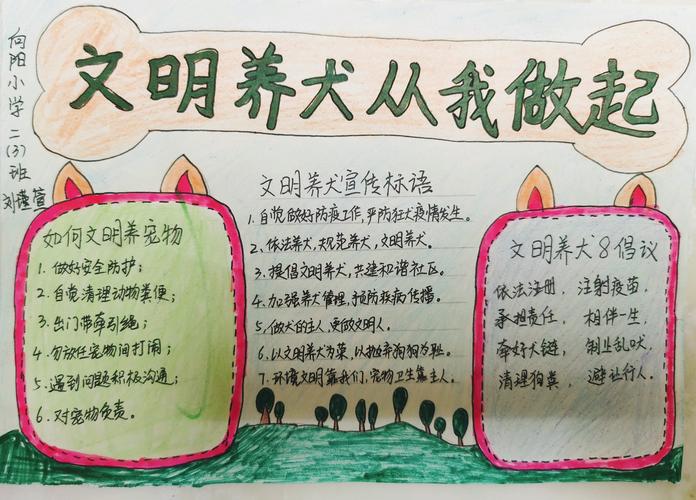 文明养犬从我做起
向阳小学二(3)班
刘瑾萱
如何文明养宠物
1. 做好安全防护；
2. 自觉清理动物粪便；
3. 出门带牵引绳；
4. 勿放任宠物间打闹；
5. 遇到问题积极沟通；
6. 对宠物负责。
文明养犬宣传标语
1. 自觉做好防疫工作，严防狂犬疫情发生。
2、依法养犬，规范养犬，文明养犬。
3、提倡文明养犬，共建和谐社区。
4、加强养犬管理，预防疾病传播。
5、做犬的主人，更做文明人。
6、以文明养犬为荣，以抛弃狗狗为耻。
7、环境文明靠我们，宠物卫生靠主人。
文明养犬8倡议
依法注册，注射疫苗，
承担责任，相伴一生，
牵好犬链，制止乱吠，
清理狗粪，避让行人。